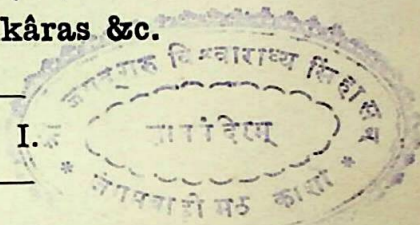 kâras &c.
जगद्गुरु विश्वाराध्य
I.
ज्ञानमंदिरम्
जंगमवाडी मठ काशी